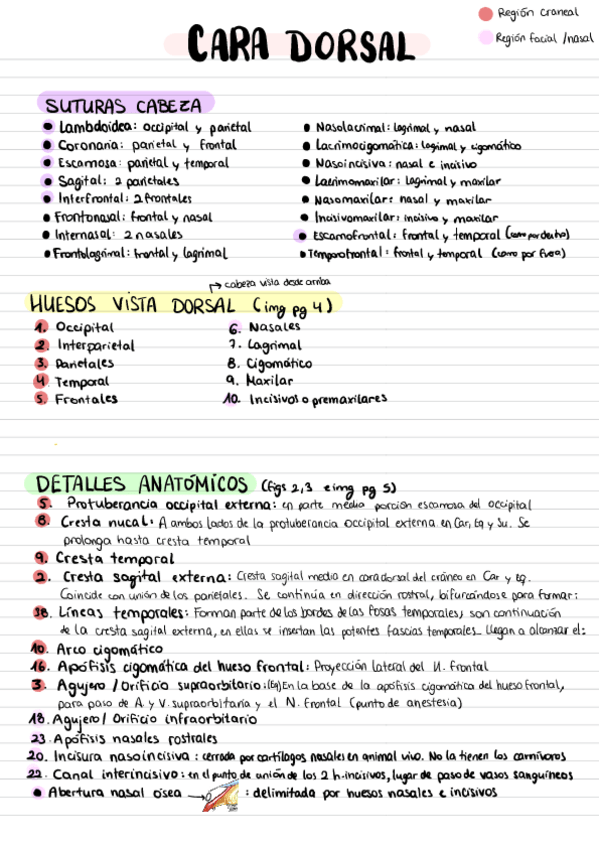 Región craneal
CARA DORSAL
Región facial /nasal
SUTURAS CABEZA
• Lambdoidea: occipital y parietal
• Coronaria: parietal y frontal
• Escamosa: parietal y temporal
• Sagital: 2 parietales
• Interfrontal: 2 frontales
• Frontonasal: frontal y nasal
• Internasal: 2 nasales
• Frontolagrimal: frontal y lagrimal
• Nasolacrimal: lagrimal y nasal
• Lacrimocigomática: lagrimal y cigomático
• Nasoincisiva: nasal e incisivo
• Lacrimomaxilar: lagrimal y maxilar
• Nasomaxilar: nasal y maxilar
• Incisivomaxilar: incisivo y maxilar
• Escamofrontal: frontal y temporal (como por dentro)
• Temporofrontal: frontal y temporal (como por fuera)
→ cabeza vista desde arriba
HUESOS VISTA DORSAL (img pg 4)
1. Occipital
2. Interparietal
3. Parietales
4. Temporal
5. Frontales
6. Nasales
7. Lagrimal
8. Cigomático
9. Maxilar
10. Incisivos o premaxilares
DETALLES ANATÓMICOS (figs 2,3 e img pg 5)
5. Protuberancia occipital externa: en parte media porción escamosa del occipital
8. Cresta nucal: A ambos lados de la protuberancia occipital externa en Car, Eq y Su. Se
prolonga hasta cresta temporal
9. Cresta temporal
2. Cresta sagital externa: Cresta sagital media en cara dorsal del cráneo en Car y Eq.
Coincide con unión de los parietales. Se continúa en dirección rostral, bifurcándose para formar:
Líneas temporales: Forman parte de los bordes de las fosas temporales, son continuación
de la cresta sagital externa, en ellas se insertan las potentes fascias temporales. Llegan a alcanzar el:
10. Arco cigomático
16. Apófisis cigomática del hueso frontal: Proyección lateral del H. Frontal
3. Agujero / Orificio supraorbitario: (Eq) En la base de la apófisis cigomática del hueso frontal,
para paso de A. y V. supraorbitaria y el N. Frontal (punto de anestesia)
18. Agujero/ Orificio infraorbitario
23. Apófisis nasales rostrales
20. Incisura nasoincisiva: cerrada por cartílagos nasales en animal vivo. No la tienen los carnívoros
22. Canal interincisivo: en el punto de unión de los 2 h. incisivos, lugar de paso de vasos sanguíneos
• Abertura nasal ósea → : delimitada por huesos nasales e incisivos